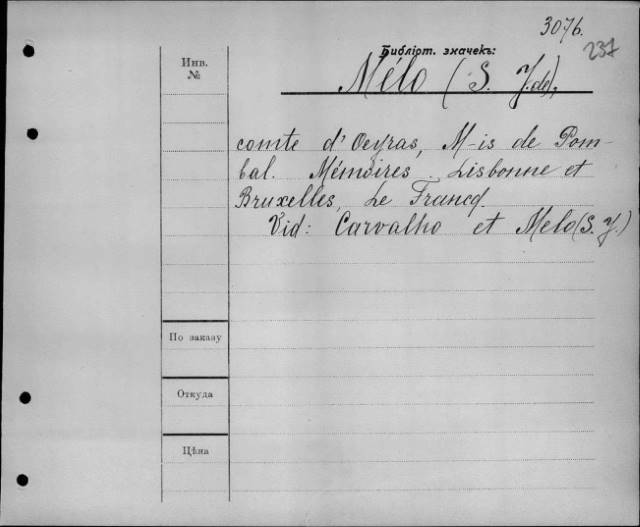 3076.
237
Библіот. значекъ:
Инв.
№
Mélo (S. J. de),
comte d'Oeyras, M-is de Pom-
bal. Mémoires. Lisbonne et
Bruxelles, Le Francq.
Vid: Carvalho et Melo (S. J.)
По заказу
Откуда
Цѣна